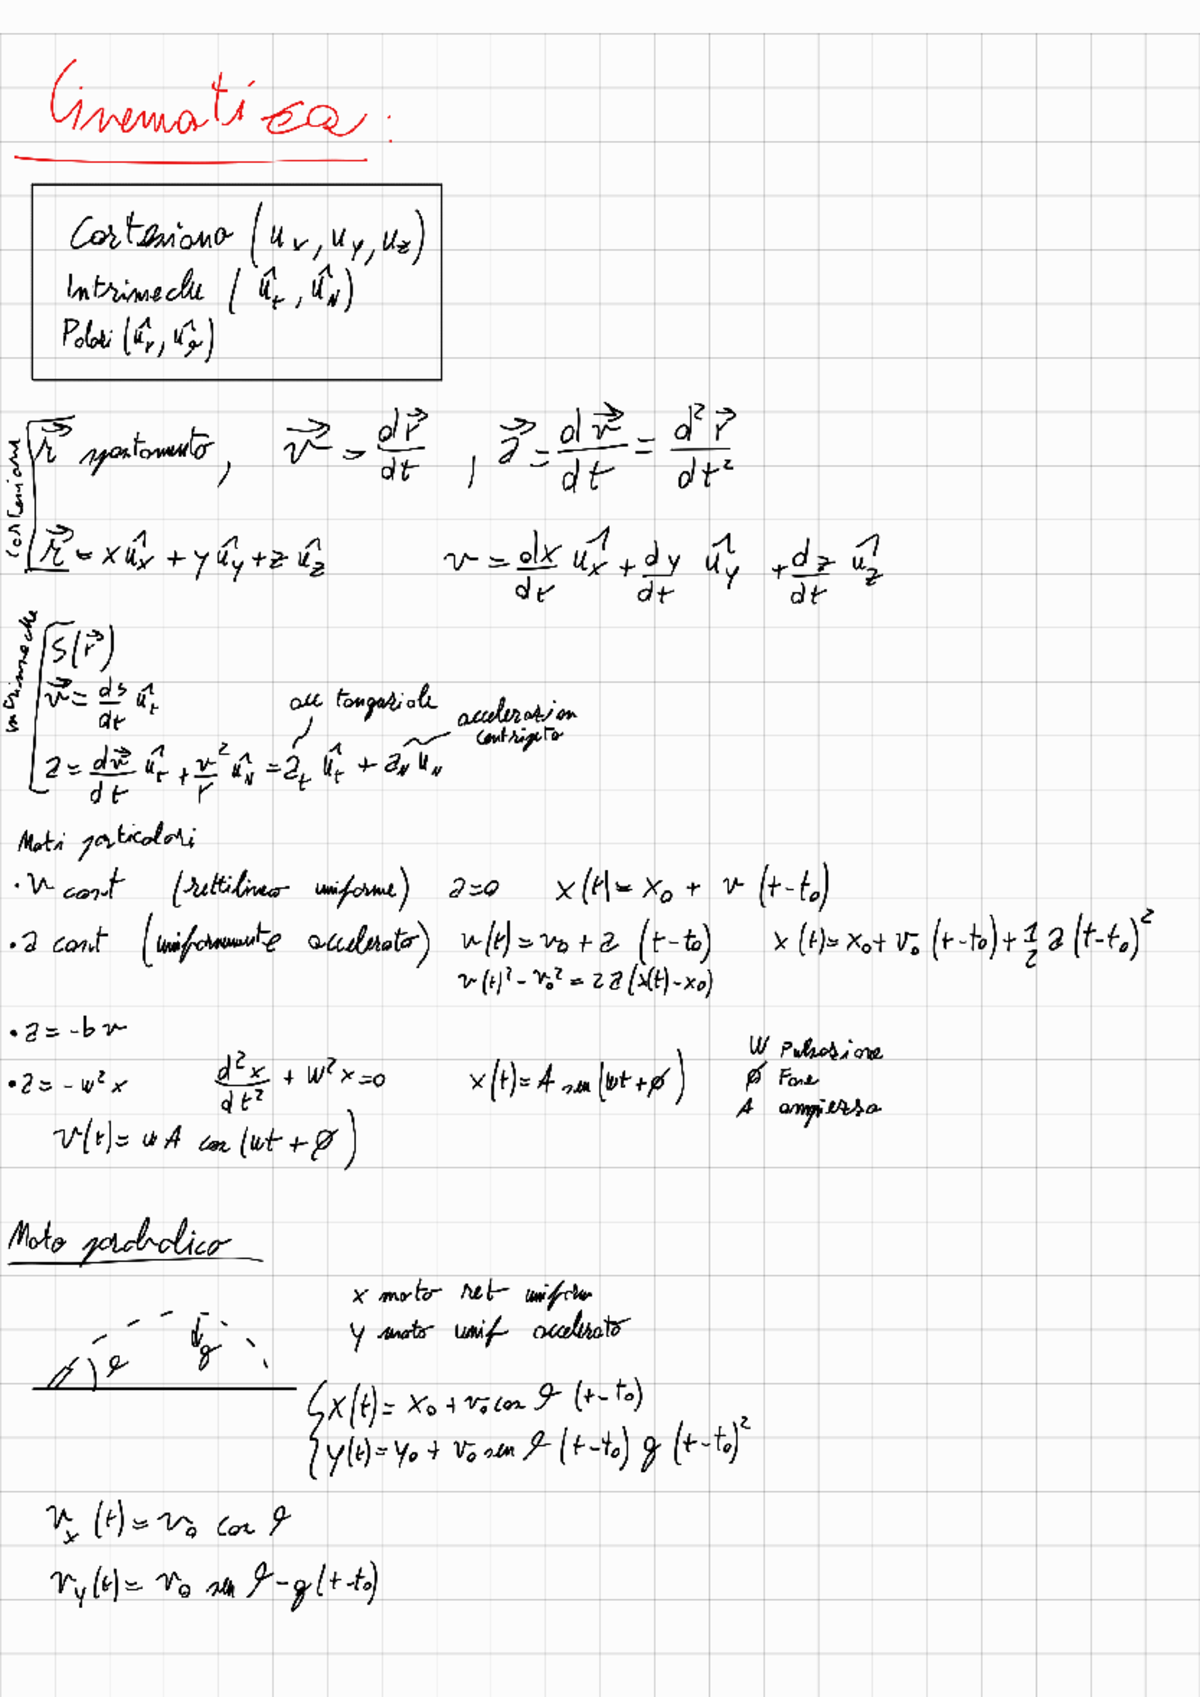 Cinematica:
Cartesiano (u_x, u_y, u_z)
Intrinseche (û_t, û_N)
Polari (û_r, û_θ)
cartesiane
r⃗ spostamento, v⃗ = dr⃗/dt, a⃗ = dv⃗/dt = d²r⃗/dt²
r⃗ = xû_x + yû_y + zû_z v = dx/dt û_x + dy/dt û_y + dz/dt û_z
intrinseche
S(r⃗)
v⃗ = ds/dt û_t
acc tangenziale
acceleration
centripeta
a = dv⃗/dt û_t + v²/r û_N = a_t û_t + a_N u_N
Moti particolari
• v cost (rettilineo uniforme) a=0 x(t) = x₀ + v (t-t₀)
• a cost (uniformemente accelerato) v(t) = v₀ + a (t-t₀) x(t) = x₀ + v₀ (t-t₀) + 1/2 a (t-t₀)²
v(t)² - v₀² = 2a (x(t) - x₀)
• a = -bv
• a = -w²x d²x/dt² + w²x = 0 x(t) = A sen(wt + ϕ)
W Pulsazione
ϕ Fase
A ampiezza
v(t) = wA cos(wt + ϕ)
Moto parabolico
x moto ret uniform
y moto unif accelerato
θ
g
x(t) = x₀ + v₀ cos θ (t-t₀)
y(t) = y₀ + v₀ sen θ (t-t₀) g (t-t₀)²
v_x (t) = v₀ cos θ
v_y (t) = v₀ sen θ - g (t-t₀)